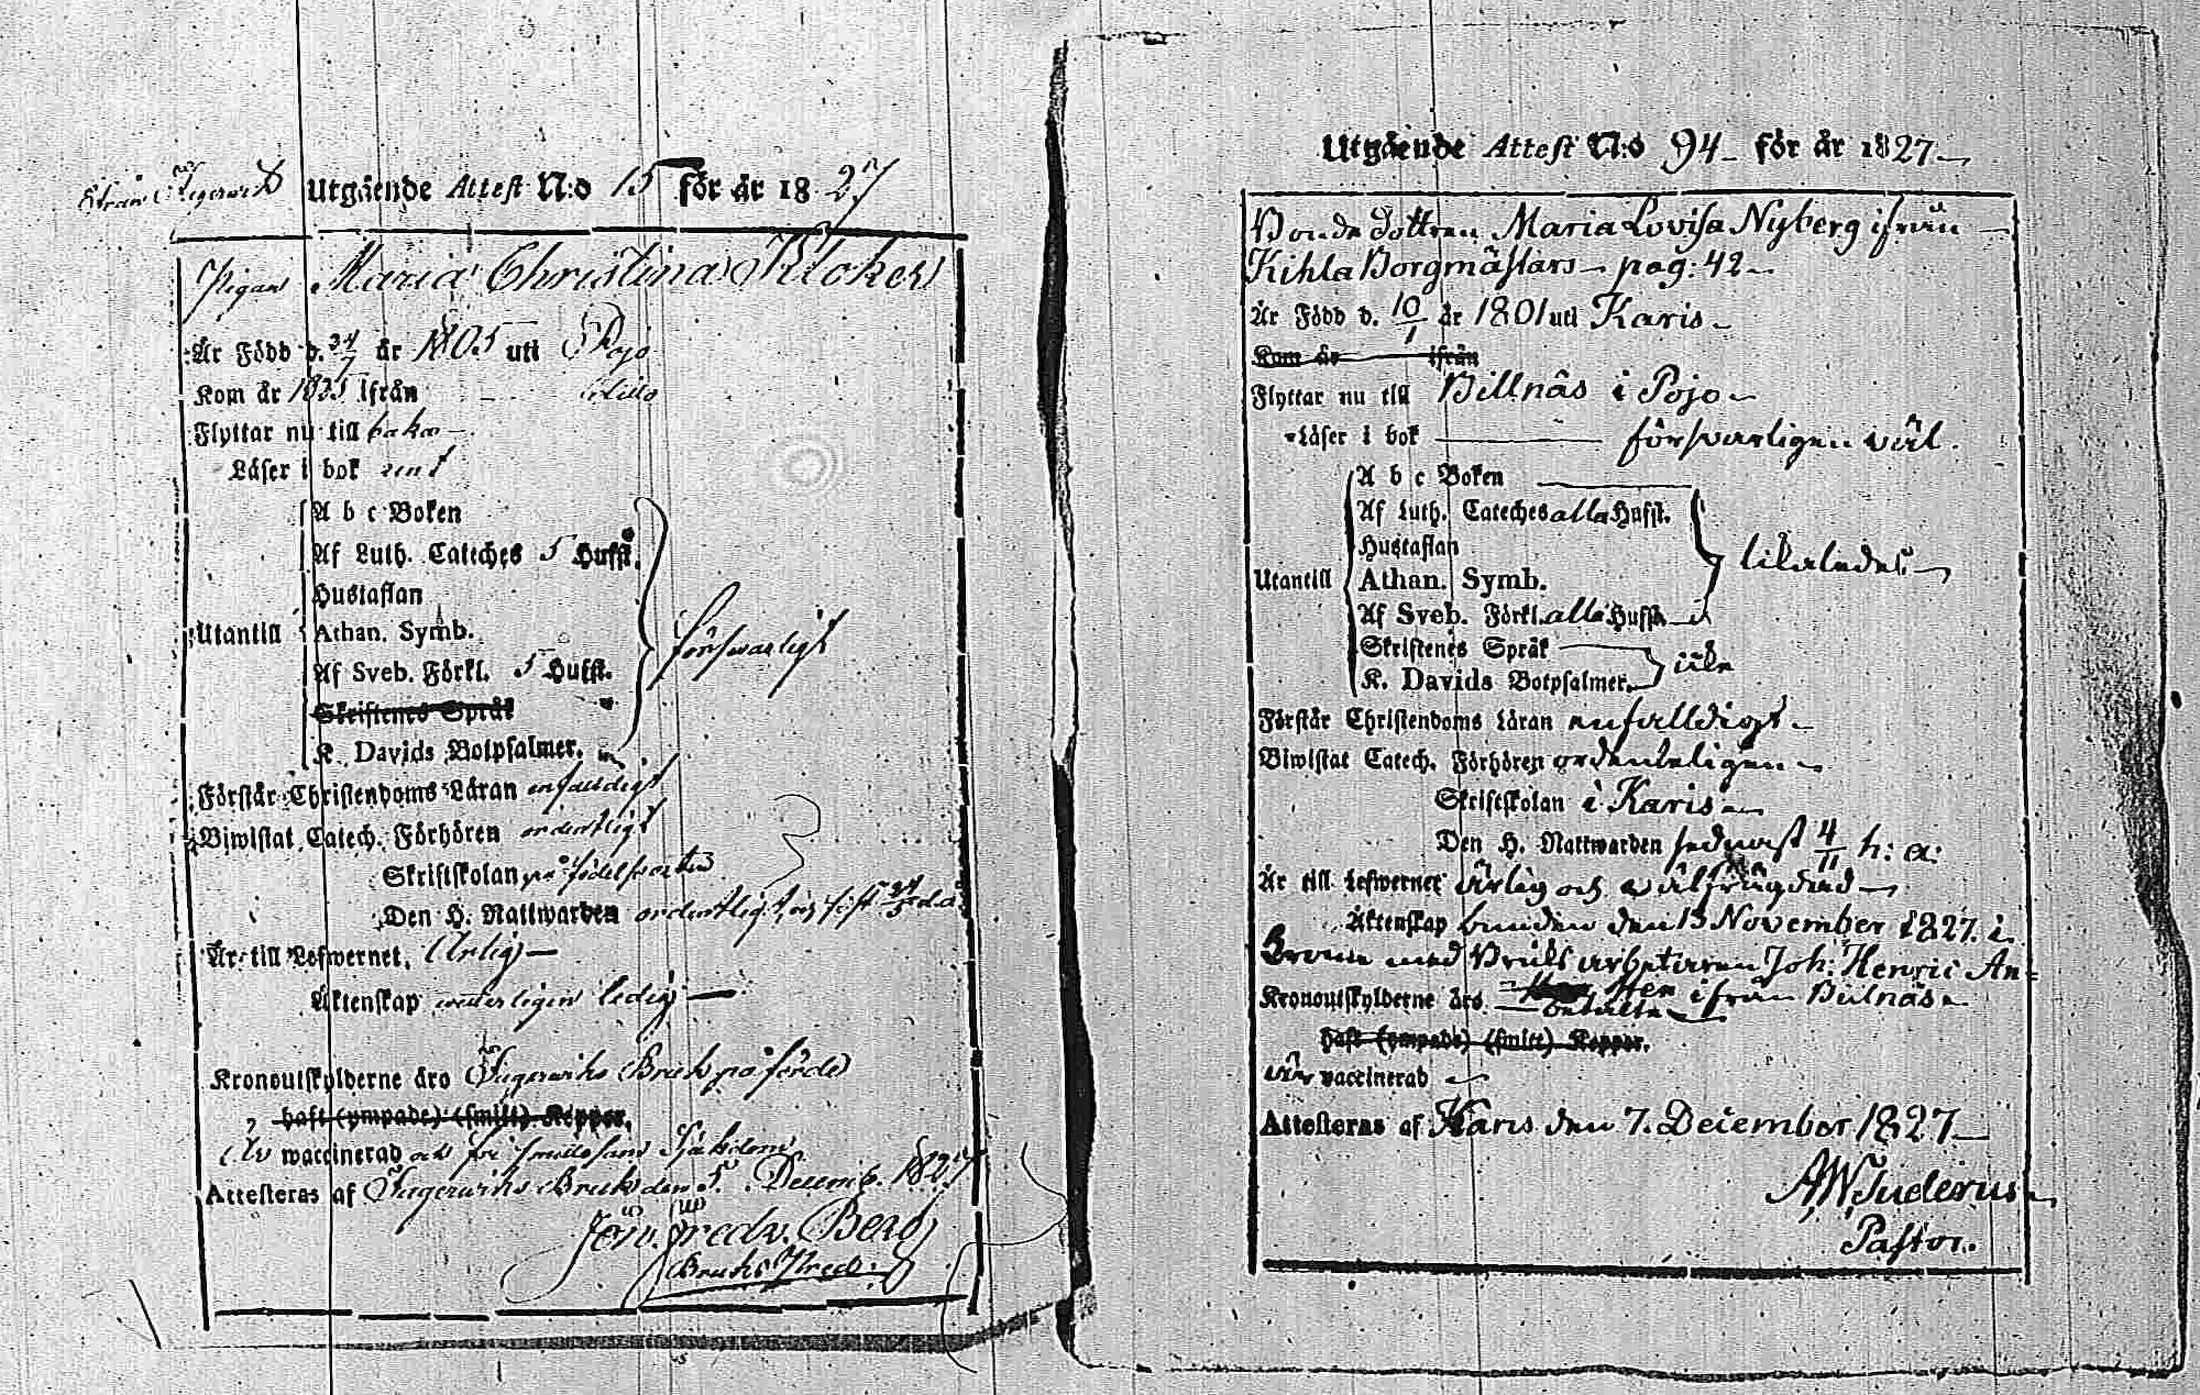 från Fagerwik Utgående Attest N:o 15 för år 1827
Pigan Maria Christina Klokes
Är Född d. 24/7 år 1805 uti Pojo
Kom år 1825 ifrån dito
Flyttar nu till baka
Läser i bok rent
A b c Boken
Af Luth. Cateches 5 Hufst.
Hustaflan
Utantill Athan. Symb. försvarligt
Af Sveb. Förkl. 5 Hufst.
Skriftenes Språk
K. Davids Botpsalmer.
Förstår Christendoms Läran enfaldigt
Biwistat Catech. Förhören ordentligt
Skriftskolan på födelseorten
Den H. Nattwarden ordentligt, sist 24/5
Är till Lefwernet Ärlig
Äktenskap ledig
Kronoutskylderne äro Fagerwiks Bruk påförde
haft (ympade) (smitt) Koppor.
Är vaccinerad och fri från smittosam Sjukdom
Attesteras af Fagerwiks Bruk den 5 Decemb. 1827
Fredr. Berg
Bruks Pred:
Utgående Attest N:o 94 för år 1827
Bonde dottren Maria Lovisa Nyberg ifrån
Kihla Borgmästars pag: 42
Är Född d. 10/1 år 1801 uti Karis
Kom år ifrån
Flyttar nu till Billnäs i Pojo
Läser i bok försvarligen väl.
A b c Boken
Af Luth. Cateches alla Hufst.
Hustaflan likaledes
Utantill Athan. Symb.
Af Sveb. Förkl. alla Hufst.
Skriftenes Språk icke
K. Davids Botpsalmer.
Förstår Christendoms Läran enfalldigt
Biwistat Catech. Förhören ordenteligen
Skriftskolan i Karis
Den H. Nattwarden sednast 4/11 h: a:
Är till Lefwernet ärlig och välfrägdad
Äktenskap bunden den 13 November 1827 i
Bromarf med Bruks arbetaren Joh: Henric An=
Kronoutskylderne äro betalte ifrån Billnäs
haft (ympade) (smitt) Koppor.
är vaccinerad
Attesteras af Karis den 7. December 1827
A W Tuderus
Pastor.